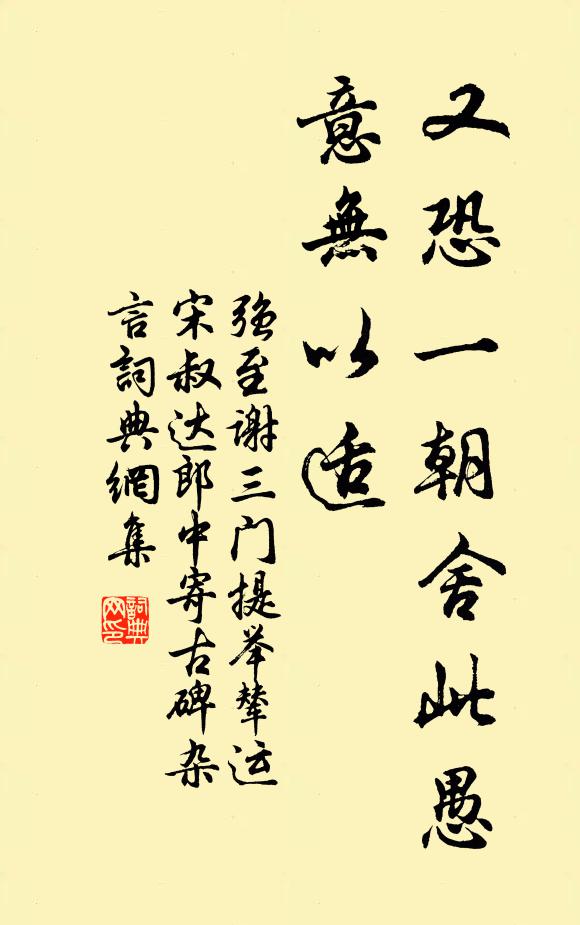 又恐一朝舍此愚
意無以适
强至谢三门提举辇运
宋叔达郎中寄古碑杂
言詞典網集
詞典
网印